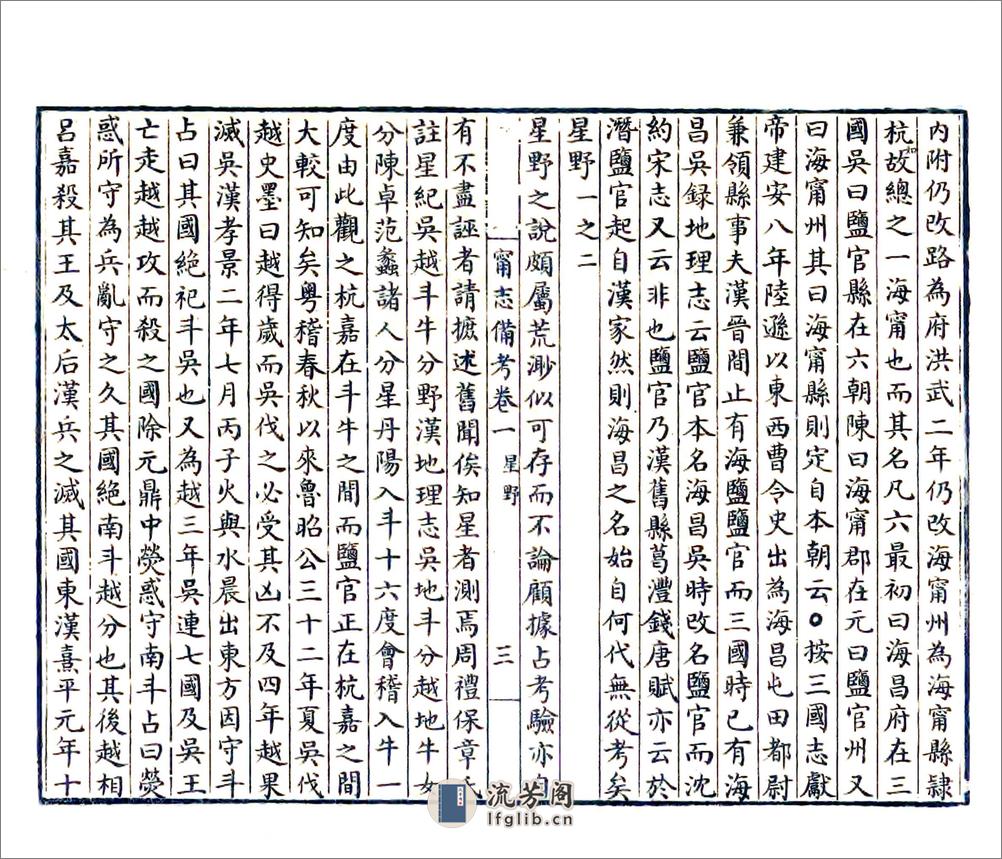 內附仍改路為府洪武二年仍改海甯州為海甯縣隸
杭故總之一海甯也而其名凡六最初曰海昌府在三
國吳曰鹽官縣在六朝陳曰海甯郡在元曰鹽官州又
曰海甯州其曰海甯縣則定自本朝云〇按三國志獻
帝建安八年陸遜以東西曹令史出為海昌屯田都尉
兼領縣事夫漢晉間止有海鹽鹽官而三國時已有海
昌吳録地理志云鹽官本名海昌吳時改名鹽官而沈
約宋志又云非也鹽官乃漢舊縣葛灃錢唐賦亦云於
潛鹽官起自漢家然則海昌之名始自何代無從考矣
星野一之二
星野之說頗屬荒渺似可存而不論顧據占考驗亦自
甯志備考卷一 星野 三
有不盡誣者請摭述舊聞俟知星者測焉周禮保章氏
註星紀吳越斗牛分野漢地理志吳地斗分越地牛女
分陳卓范蠡諸人分星丹陽入斗十六度會稽入牛一
度由此觀之杭嘉在斗牛之間而鹽官正在杭嘉之間
大較可知矣粤稽春秋以來魯昭公三十二年夏吳伐
越史墨曰越得歲而吳伐之必受其凶不及四年越果
滅吳漢孝景二年七月丙子火與水晨出東方因守斗
占曰其國絕祀斗吳也又為越三年吳連七國及吳王
亡走越越攻而殺之國除元鼎中熒惑守南斗占曰熒
惑所守為兵亂守之久其國絕南斗越分也其後越相
呂嘉殺其王及太后漢兵之滅其國東漢熹平元年十
流芳阁
lfglib.cn